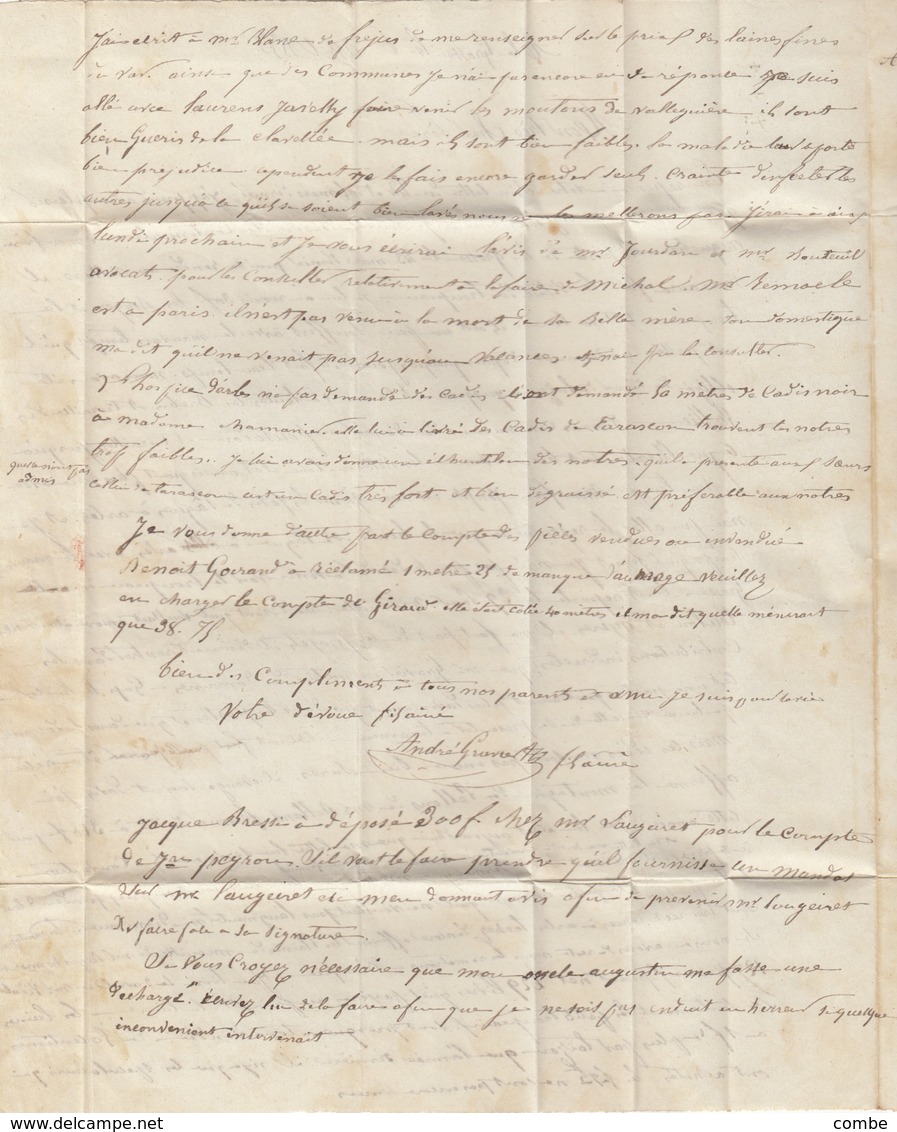 J'ai ecrit à mr Blanc de frejus de me renseigner sur le prix des laines fines
du var. ainsi que des Communes je n'ai pas encore eu de réponce je suis
allé avec laurens Javelly faire venir les moutons de valleguière ils sont
bien Gueris de la clavellée. mais ils sont bien faibles. la maladie leur porte
bien prejudice cependant je les fais encore garder seuls. crainte d'infecter les
autres jusqu'à ce qu'ils se soient bien lavés nous les mettrons j'irai à aix
lundi prochain et je vous écrirai l'avis de mr Jourdan et mr Bouteuil
avocats. pour les Consulter relativement à l'afaire de Michel. Mr
est à paris. il n'est pas venu à la mort de sa belle mère. son domestique
ma dit qu'il ne venait pas jusqu'au vacances
L'hospice d'arles n'a pas demandé des cadis ils ont demandé 50 mètres de Cadis noir
à madame chamanier. elle lui à livré des Cadis de tarascon trouvent les nôtres
trop faibles. Je lui avais donné un échantillon des nôtres. qu'il a presenté aux Sœurs
qui les ont pas
admis
celui de tarascon est un Cadis très fort. et bien dégraissé est préferable aux nôtres
Je vous donne d'autre part le Compte des pièces vendues ou invendué
Benoit Goirand a réclamé 1 metre 25 de manque d'aunage veuillez
en charger le Compte de Giraud. elle était cotée 40 mètres il ma dit quelle ménirait
que 38. 75
bien des Compliments à tous nos parents et amis je suis pour la vie
Votre dévoué fils ainé
André fils ainé
Jacque Bresse à déposé 300 f. chez mr Laugeiret pour le Compte
de peyron. S'il veut le faire prendre qu'il fournisse un mandat
sur mr laugeiret et m'en donnant avis afin de prevenir mr laugeiret
de faire face à sa Signature.
Si vous Croyez nécessaire que mon oncle augustin me fasse une
décharge. écrivez lui de la faire afin que je ne sois pas induit en herreur si quelque
inconvenient intervenait
combe
www.delcampe.net